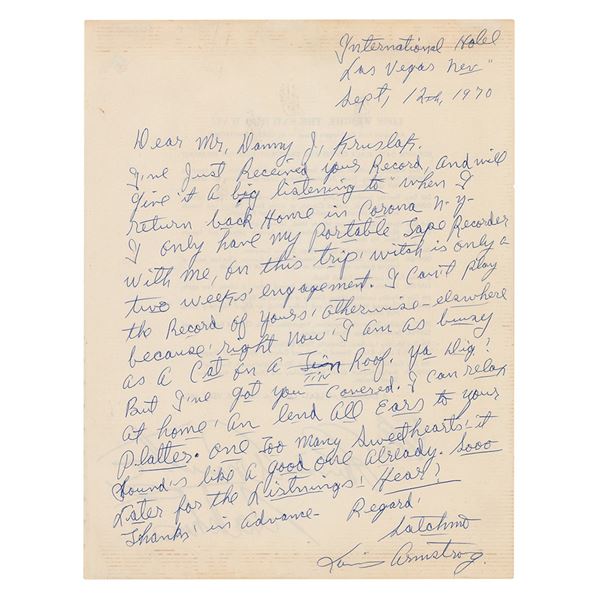 International Hotel
Las Vegas Nev"
Sept, 12th, 1970
Dear Mr. Danny J, Kruslak.
I've Just Received your Record, And will
give it A big listening to" when I
return back Home in Corona N-Y-
I only have my Portable Tape Recorder
with me, on this trip' witch is only a
two weeks' engagement. I Can't play
the Record of yours' otherwise - elsewhere
because' right Now' I am as buuzy
As A Cat on A Tin Roof. Ya Dig?
But I've got you Covered. I can relax
At home' An lend All Ears to your
Platter. One Too Many Sweethearts' it
Sound's like A good one Already. Sooo
Later for the Listnings' Hear?
Thanks' in Advance - Regard'
Satchmo
Louis Armstrong.